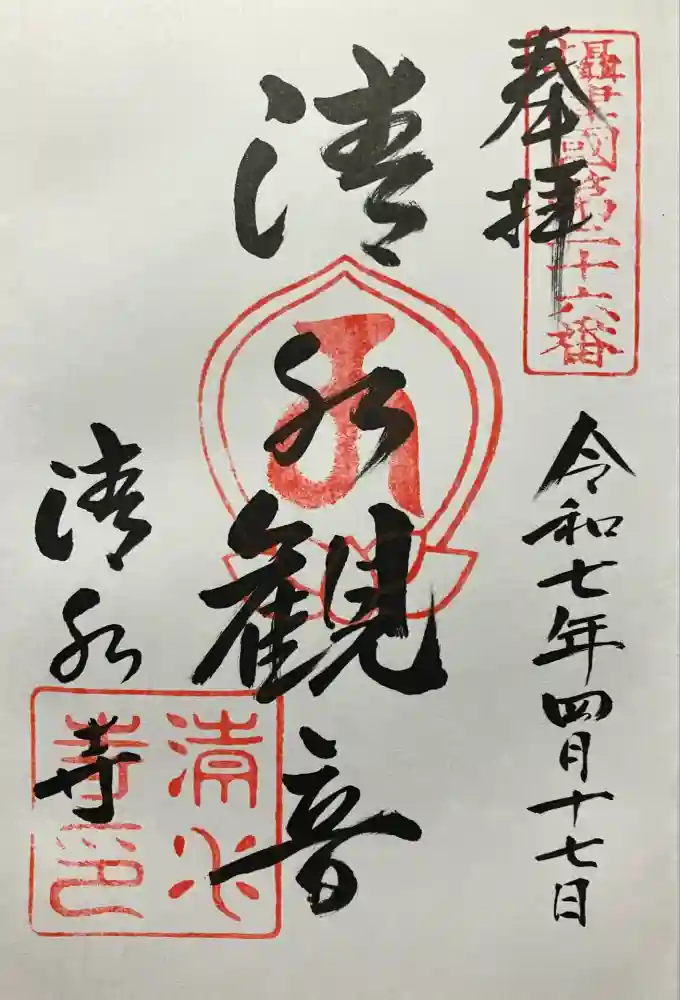 奉拝
攝津國第三十六番
令和七年四月十七日
清水観音
清水寺
清水寺印